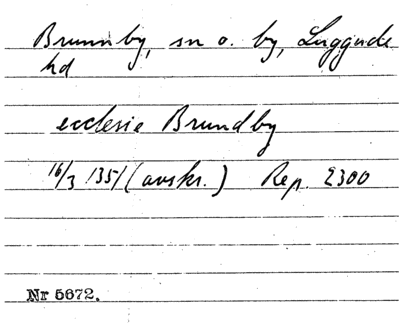 Brunnby, sn o. by, Luggude
hd
ecclesie Brundby
16/3 1351 (avskr.) Rep. 2300
Nr 5672.